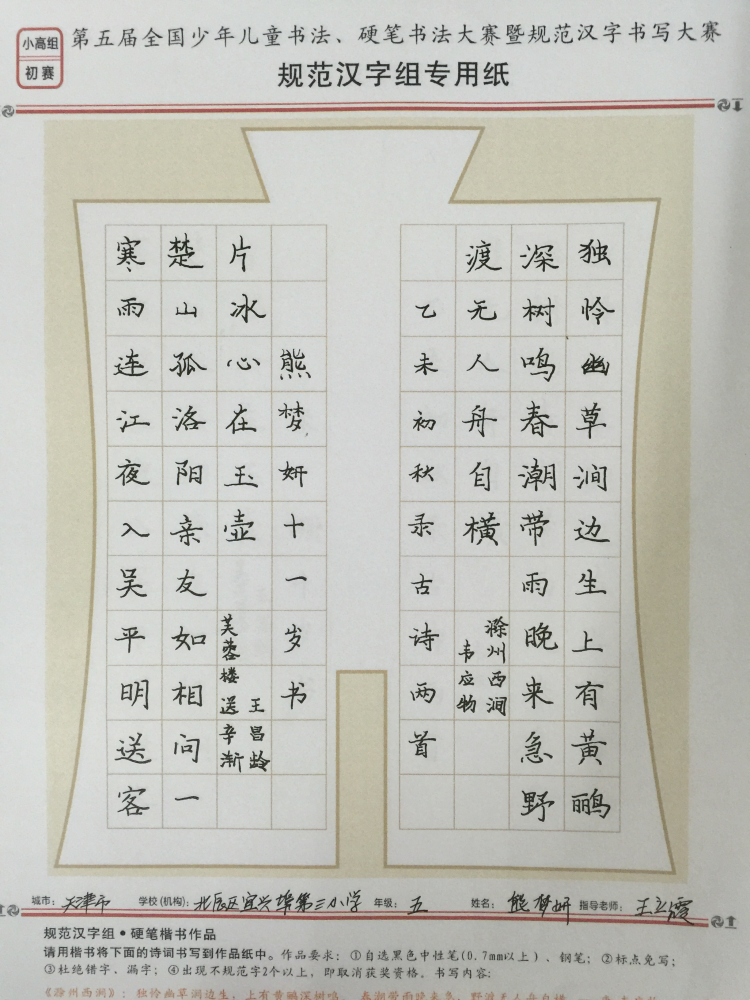 小高组
初赛
第五届全国少年儿童书法、硬笔书法大赛暨规范汉字书写大赛
规范汉字组专用纸
独怜幽草涧边生上有黄鹂
深树鸣春潮带雨晚来急野
渡无人舟自横
滁州西涧
韦应物
乙未初秋录古诗两首
寒雨连江夜入吴平明送客
楚山孤洛阳亲友如相问一
片冰心在玉壶
芙蓉楼送辛渐
王昌龄
熊梦妍十一岁书
城市：天津市 学校(机构)：北辰区宜兴埠第三小学 年级：五 姓名：熊梦妍 指导老师：王立霞
规范汉字组·硬笔楷书作品
请用楷书将下面的诗词书写到作品纸中。作品要求：①自选黑色中性笔(0.7mm以上)、钢笔；②标点免写；
③杜绝错字、漏字；④出现不规范字2个以上，即取消获奖资格。书写内容：
《滁州西涧》：独怜幽草涧边生，上有黄鹂深树鸣。